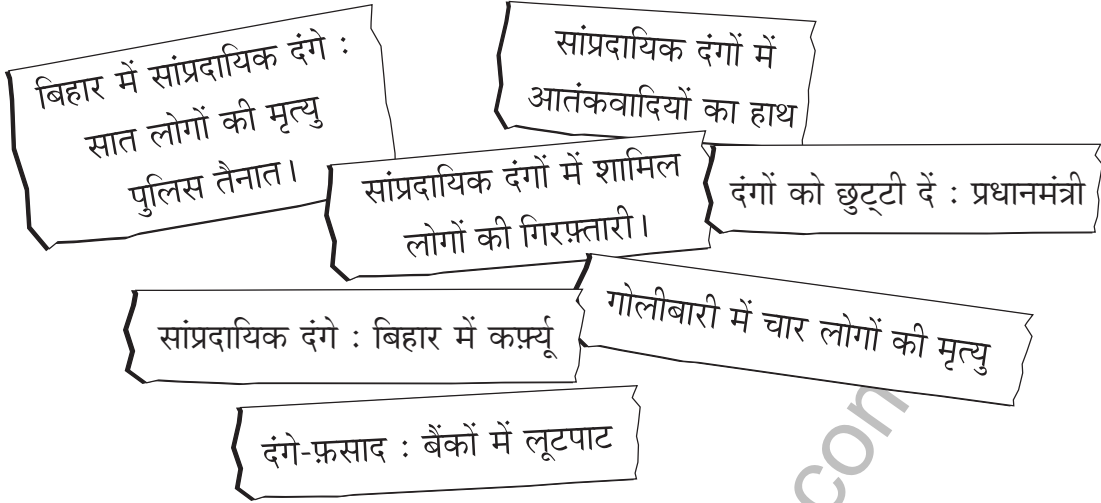 बिहार में सांप्रदायिक दंगे :
सात लोगों की मृत्यु
पुलिस तैनात।
सांप्रदायिक दंगों में
आतंकवादियों का हाथ
सांप्रदायिक दंगों में शामिल
लोगों की गिरफ़्तारी।
दंगों को छुट्टी दें : प्रधानमंत्री
सांप्रदायिक दंगे : बिहार में कर्फ़्यू
गोलीबारी में चार लोगों की मृत्यु
दंगे-फ़साद : बैंकों में लूटपाट
.com